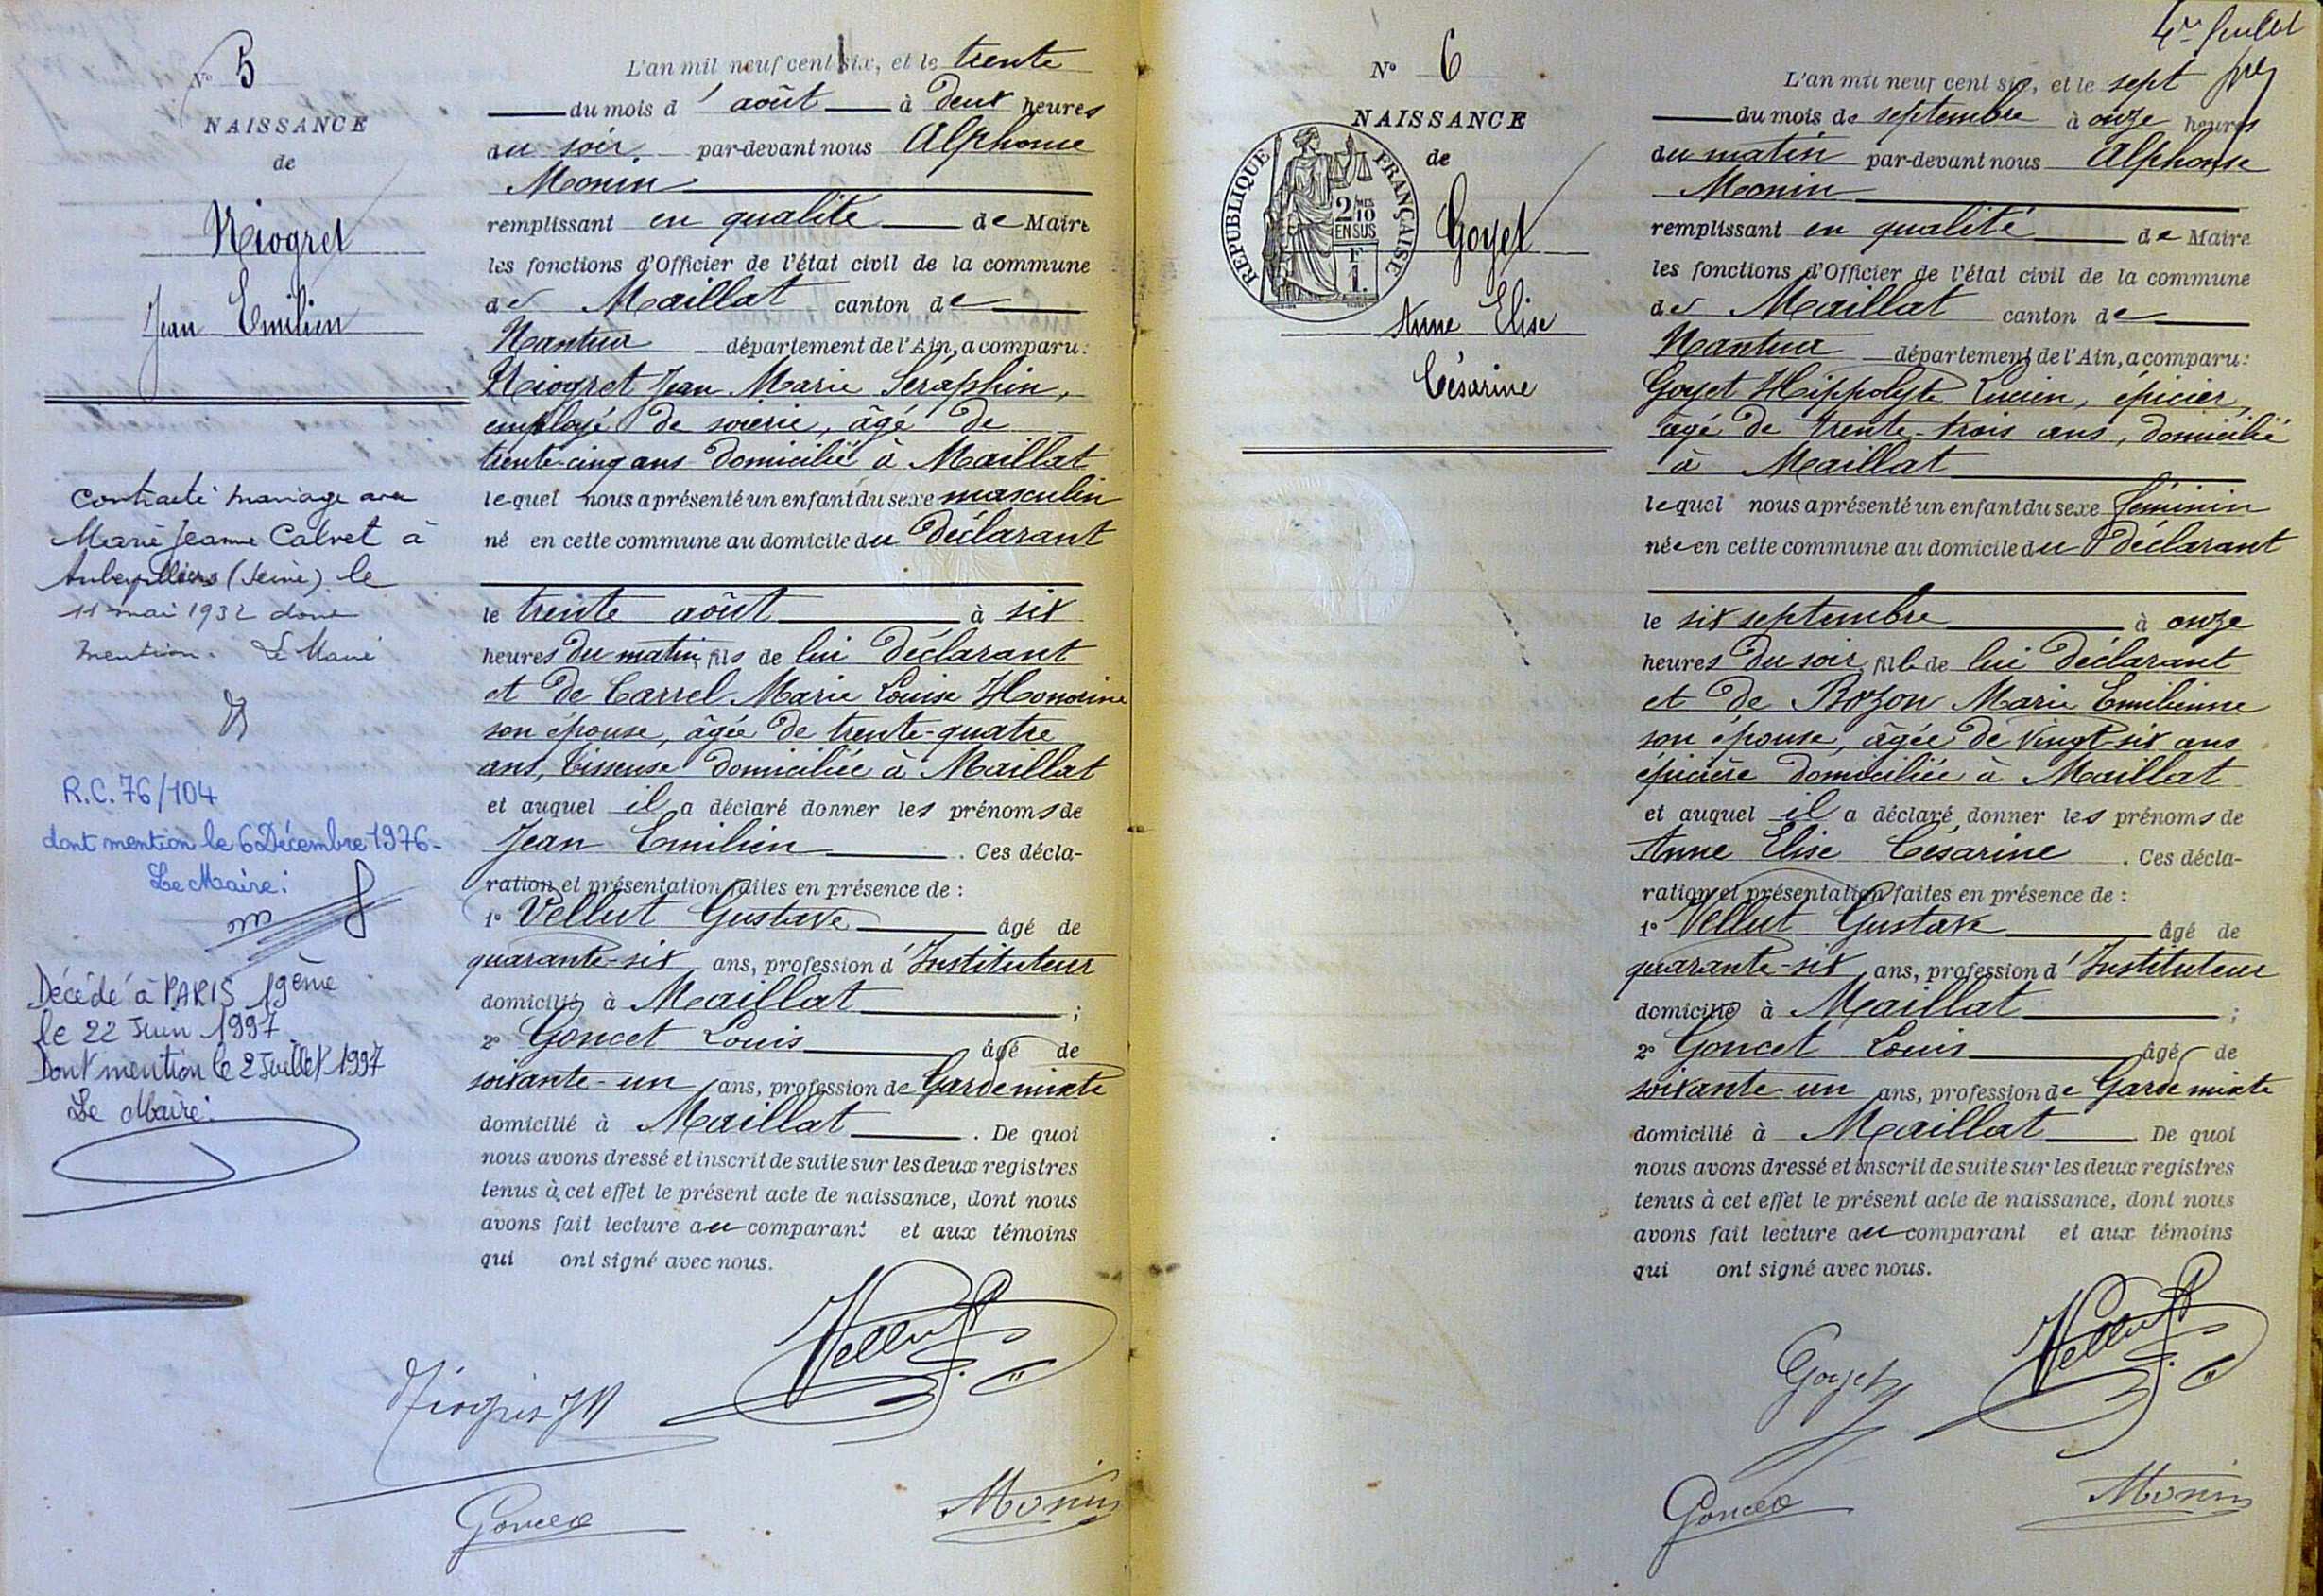 N° 5
NAISSANCE
de
Niogret
Jean Emilien
Contracté mariage avec
Marie Jeanne Calvet à
Aubervilliers (Seine) le
11 mai 1932 dont
mention. Le Maire
R.C. 76/104
dont mention le 6 Décembre 1976-
Le Maire:
Décédé à PARIS 19ème
le 22 Juin 1997
Dont mention le 2 Juillet 1997
Le Maire:
L'an mil neuf cent six, et le trente
du mois d'août à deux heures
du soir, par-devant nous Alphonse
Monin
remplissant en qualité de Maire
les fonctions d'Officier de l'état civil de la commune
de Maillat canton de
Nantua département de l'Ain, a comparu:
Niogret Jean Marie Séraphin,
employé de soierie, âgé de
trente-cinq ans domicilié à Maillat
lequel nous a présenté un enfant du sexe masculin
né en cette commune au domicile du déclarant
le trente août à six
heures du matin, fils de lui déclarant
et de Carrel Marie Louise Honorine
son épouse, âgée de trente-quatre
ans, tisseuse domiciliée à Maillat
et auquel il a déclaré donner les prénoms de
Jean Emilien. Ces décla-
ration et présentation faites en présence de:
1° Vellut Gustave âgé de
quarante-six ans, profession d'Instituteur
domicilié à Maillat;
2° Goncet Louis âgé de
soixante-un ans, profession de Garde mixte
domicilié à Maillat. De quoi
nous avons dressé et inscrit de suite sur les deux registres
tenus à cet effet le présent acte de naissance, dont nous
avons fait lecture au comparant et aux témoins
qui ont signé avec nous.
Vellut
Niogret JM
Goncet
Monin
4me feuillet
N° 6
NAISSANCE
de
RÉPUBLIQUE FRANÇAISE
2/10MES
EN SUS
F
1.
Goyet
Anne Elise
Césarine
L'an mil neuf cent six, et le sept
du mois de septembre à onze heures
du matin par-devant nous Alphonse
Monin
remplissant en qualité de Maire
les fonctions d'Officier de l'état civil de la commune
de Maillat canton de
Nantua département de l'Ain, a comparu:
Goyet Hippolyte Lucien, épicier,
âgé de trente-trois ans, domicilié
à Maillat
lequel nous a présenté un enfant du sexe féminin
née en cette commune au domicile du déclarant
le six septembre à onze
heures du soir, fille de lui déclarant
et de Bozon Marie Emilienne
son épouse, âgée de vingt-six ans
épicière domiciliée à Maillat
et auquel il a déclaré donner les prénoms de
Anne Elise Césarine. Ces décla-
ration et présentation faites en présence de:
1° Vellut Gustave âgé de
quarante-six ans, profession d'Instituteur
domicilié à Maillat;
2° Goncet Louis âgé de
soixante-un ans, profession de Garde mixte
domicilié à Maillat De quoi
nous avons dressé et inscrit de suite sur les deux registres
tenus à cet effet le présent acte de naissance, dont nous
avons fait lecture au comparant et aux témoins
qui ont signé avec nous.
Vellut
Goyet
Goncet
Monin